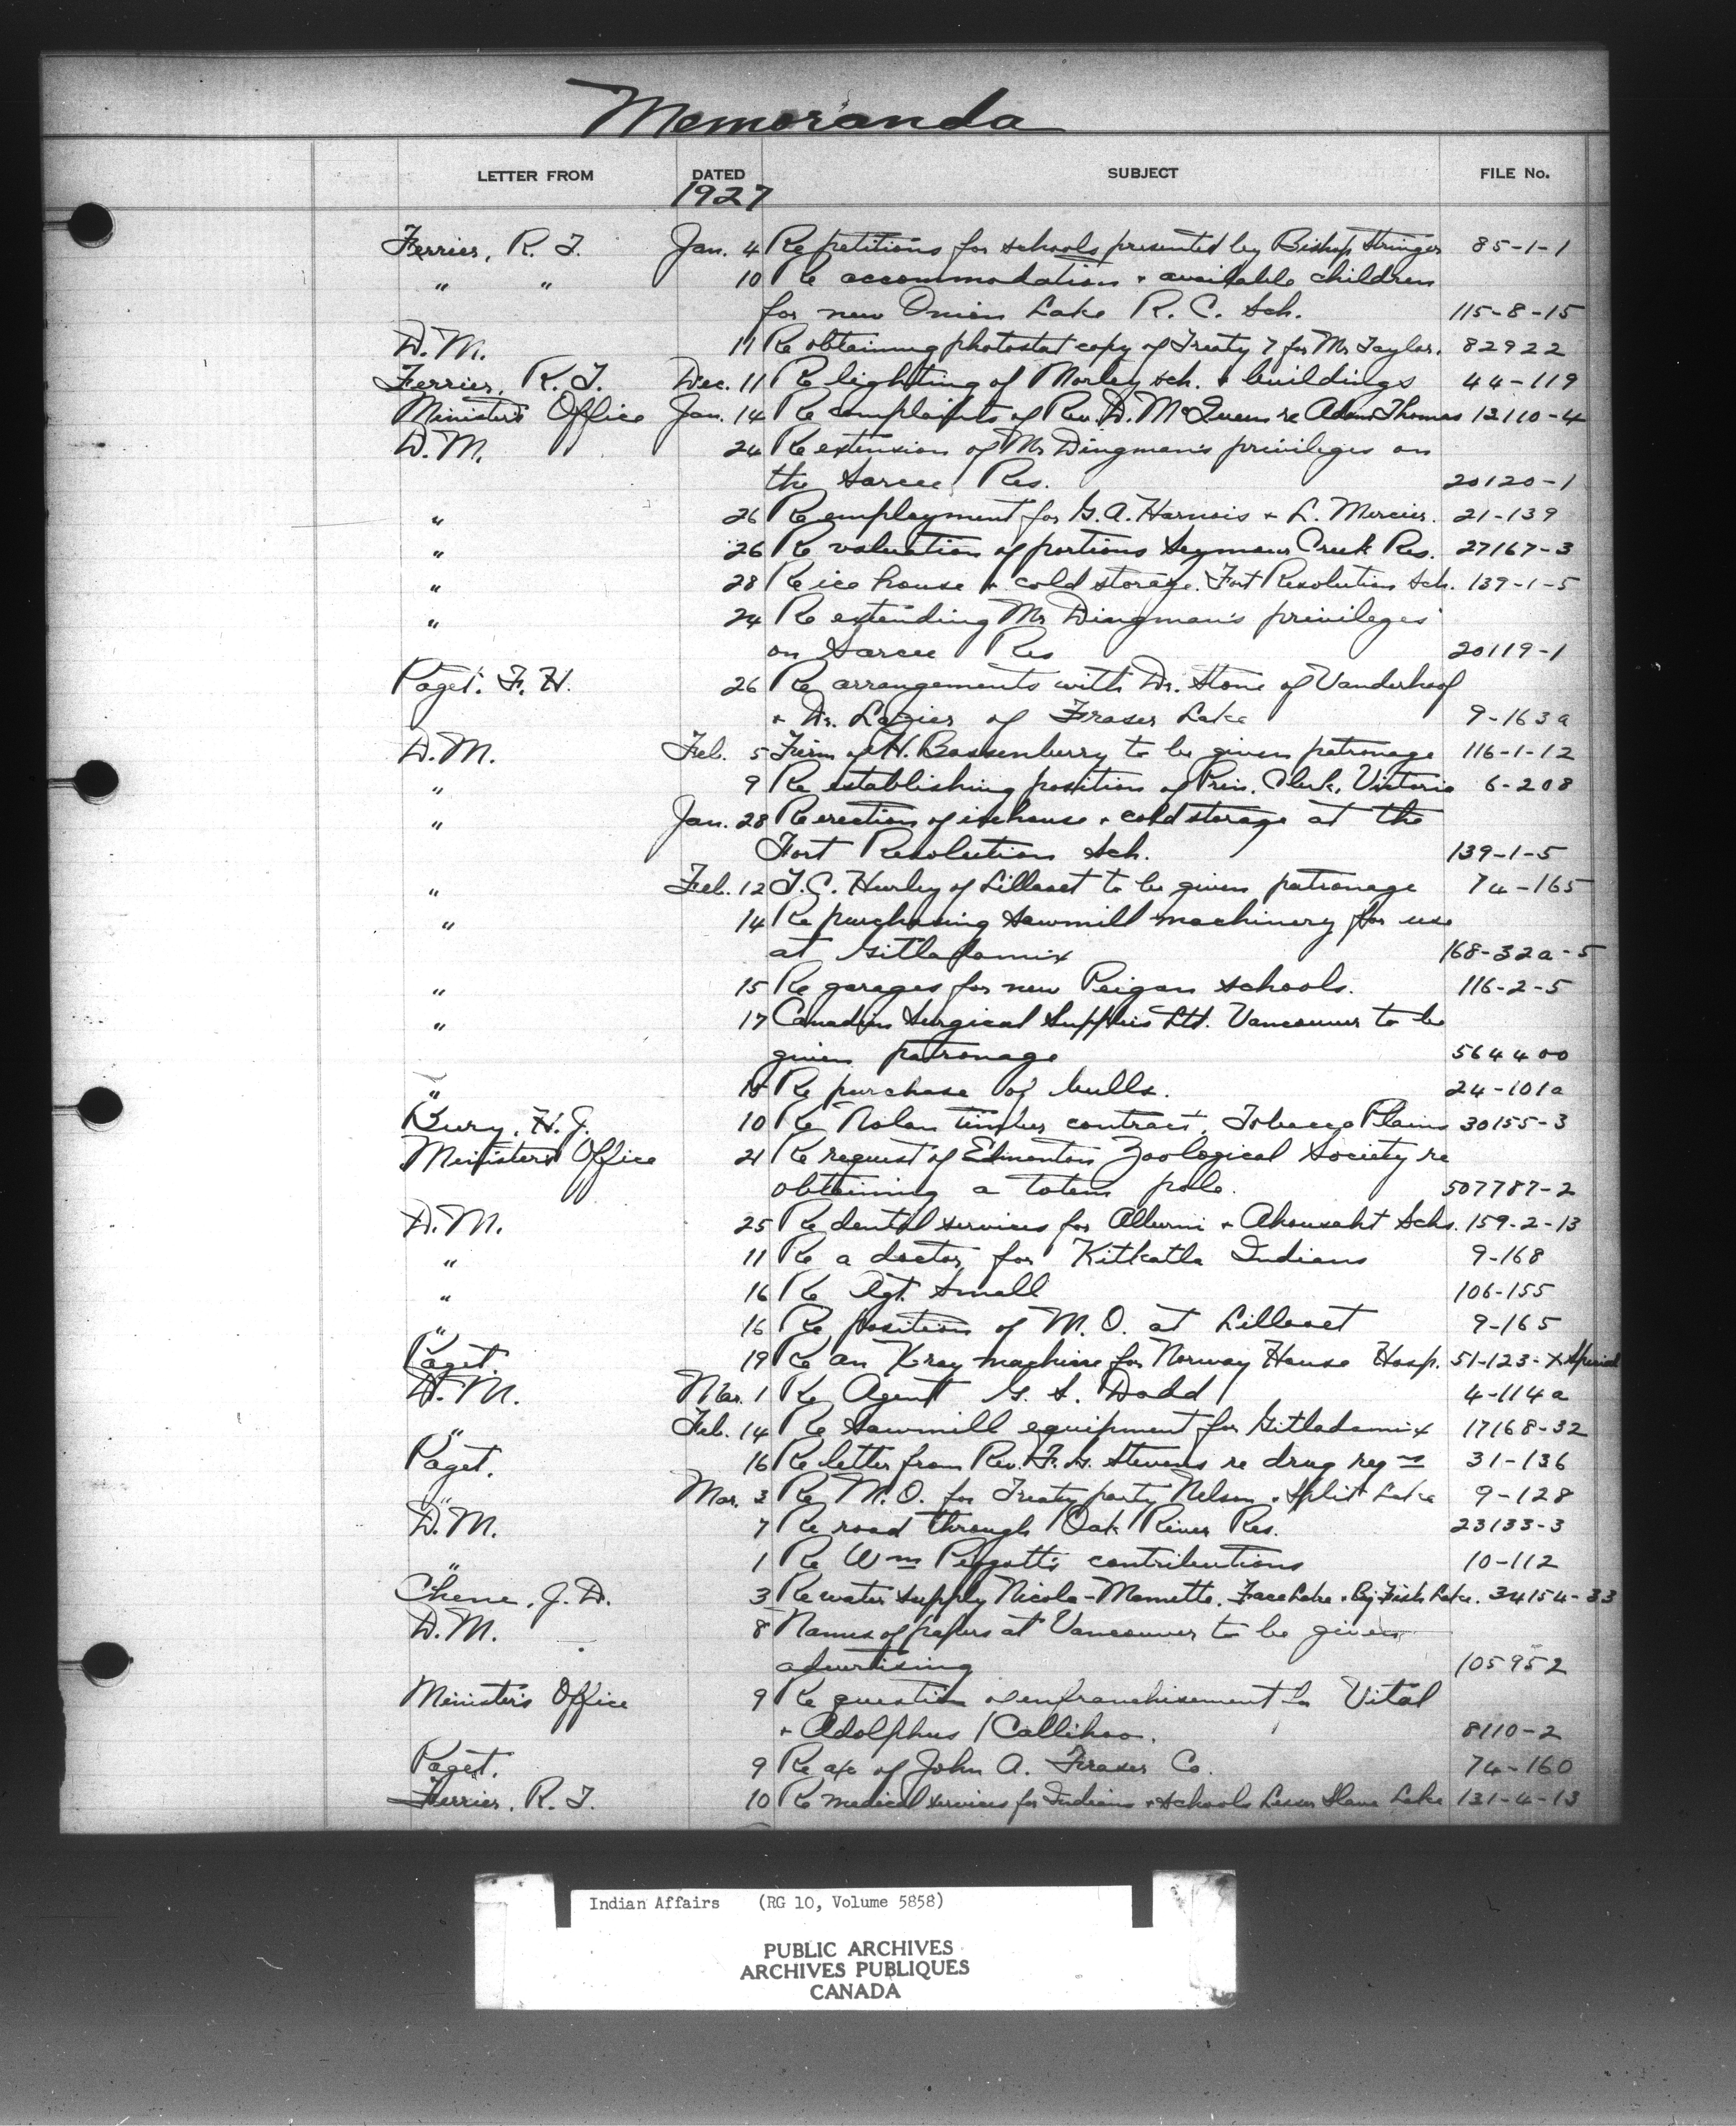 Memoranda
LETTER FROM DATED SUBJECT FILE No.
1927
Ferrier, R. T. Jan. 4 Re petitions for schools presented by Bishop Stringer 85-1-1
" " 10 Re accommodation + available children
for new Onion Lake R. C. Sch. 115-8-15
D.M. 11 Re obtaining photostat copy of Treaty 7 for Mr Taylor. 82922
Ferrier, R. T. Dec. 11 Re lighting of Morley sch. + buildings 44-119
Minister's Office Jan. 14 Re complaints of Rev. D. McQueen re Adam Thomas 12110-4
D.M. 24 Re extension of Mr Dingman's privileges on
the Sarcee Res. 20120-1
" 26 Re employment for G. A. Harnois + L. Mercier. 21-139
" 26 Re valuation of portions Seymour Creek Res. 27167-3
" 28 Re ice house + cold storage. Fort Resolution Sch. 139-1-5
" 24 Re extending Mr Dingman's privileges
on Sarcee Res 20119-1
Paget. F. H. 26 Re arrangements with Dr. Stone of Vanderhoof
+ Dr. Lazier of Fraser Lake 9-163a
D.M. Feb. 5 Firm of H. to be given patronage 116-1-12
" 9 Re establishing position of Prin. Clerk, Victoria 6-208
" Jan. 28 Re erection of icehouse + cold storage at the
Fort Resolution Sch. 139-1-5
" Feb. 12 T. C. Hurley of Lillooet to be given patronage 74-165
" 14 Re purchasing sawmill machinery for use
at Gitladamix 168-32a-5
" 15 Re garages for new Peigan schools. 116-2-5
" 17 Canadian Surgical Supplies Ltd. Vancouver to be
given patronage 564400
" 18 Re purchase of bulls. 24-101a
Bury, H. J. 10 Re Nolan timber contract, Tobacco Plains 30155-3
Minister's Office 21 Re request of Edmonton Zoological Society re
obtaining a totem pole. 507787-2
D.M. 25 Re dental services for Alberni + Ahousaht Schs. 159-2-13
" 11 Re a doctor for Kitkatla Indians 9-168
" 16 Re Agt. Small 106-155
" 16 Re position of M. O. at Lillooet 9-165
Paget. 19 Re an X-ray machine for Norway House Hosp. 51-123-X special
D.M. Mar. 1 Re Agent G. S. Dodd 4-114a
" Feb. 14 Re Sawmill equipment for Gitladamix 17168-32
Paget. 16 Re letter from Rev. F. G. Stevens re drug regns 31-136
" Mar. 3 Re M. O. for Treaty party Nelson + Split Lake 9-128
D.M. 7 Re road through Oak River Res. 23133-3
" 1 Re Wm Piggott's contributions 10-112
Chene, J. D. 3 Re water supply Nicola-Mamette. Face Lake + Big Fish Lake. 34154-33
D.M. 8 Names of papers at Vancouver to be given
advertising 105952
Minister's Office 9 Re question of enfranchisement for Vital
+ Adolphus Callihoo. 8110-2
Paget. 9 Re a/c of John A. Fraser Co. 74-160
Ferrier, R. T. 10 Re medical services for Indians + schools Lesser Slave Lake 131-4-13
Indian Affairs (RG 10, Volume 5858)
PUBLIC ARCHIVES
ARCHIVES PUBLIQUES
CANADA